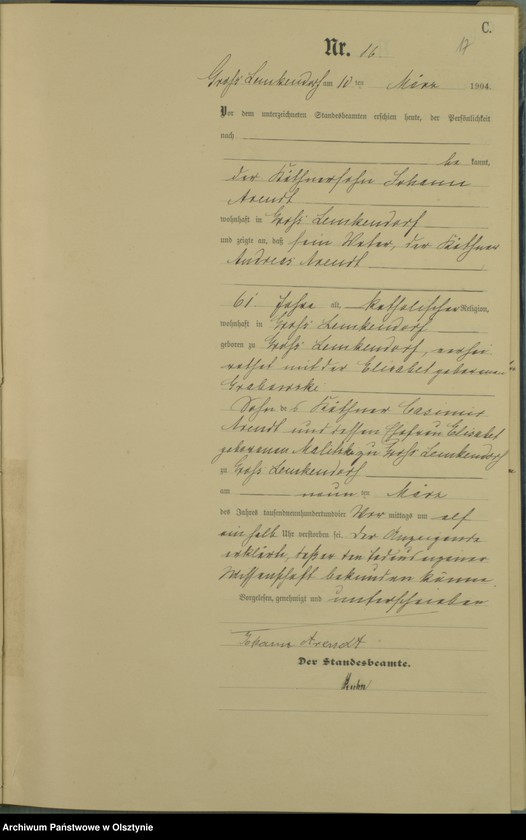 C.
Nr. 16
17
Groß Lemkendorf am 10 ten März 1904.
Vor dem unterzeichneten Standesbeamten erschien heute, der Persönlichkeit
nach
be kannt,
der Käthnersohn Johann
Arendt
wohnhaft in Groß Lemkendorf
und zeigte an, daß sein Vater, der Käthner
Andreas Arendt
61 Jahre alt, katholischer Religion,
wohnhaft in Groß Lemkendorf
geboren zu Groß Lemkendorf, verhei
rathet mit der Elisabet geborenen
Grabowski
Sohn des Käthner Casimir
Arendt und dessen Ehefrau Elisabet
geborenen zu Groß Lemkendorf
zu Groß Lemkendorf
am neun ten März
des Jahres tausendneunhundertundvier Vor mittags um elf
einhalb Uhr verstorben sei. Der Anzeigende
erklärte, daß er den Tod aus eigener
Wissenschaft bekunden könne.
Vorgelesen, genehmigt und unterschrieben
Johann Arendt
Der Standesbeamte.
Archiwum Państwowe w Olsztynie